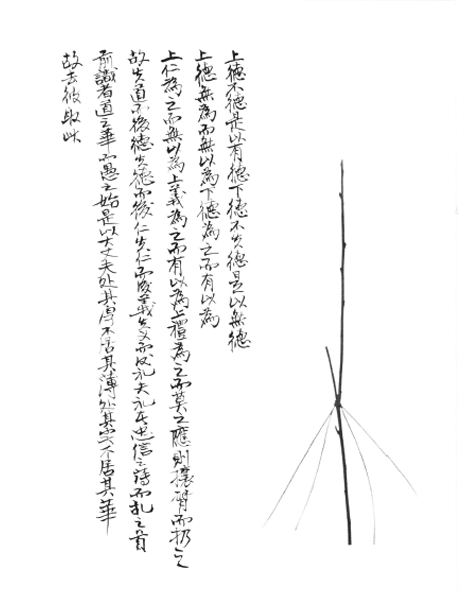 上德不德是以有德下德不失德是以無德
上德無為而無以為下德為之而有以為
上仁為之而無以為上義為之而有以為上禮為之而莫之應則攘臂而扔之
故失道而後德失德而後仁失仁而後義失义而後礼夫礼者忠信之薄而乱之首
前識者道之華而愚之始是以大丈夫处其厚不居其薄处其实不居其華
故去彼取此